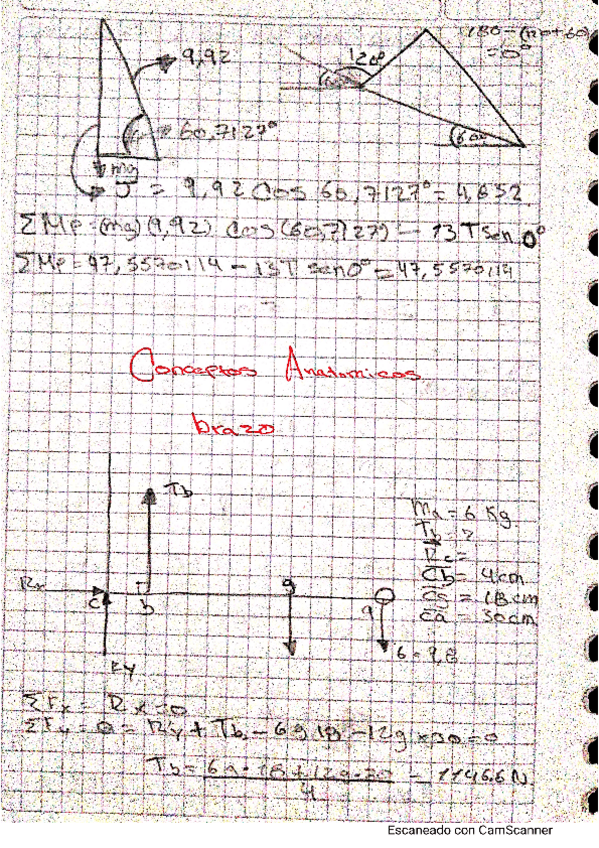 180-(120+60)
=0°
9,92
120°
60,7127°
60°
mg
J = 9,92 Cos 60,7127° = 4,852
ΣMp=(mg)(9,92) cos(60,7127) - 13T sen 0°
ΣMp=47,5570114 - 13T sen0° = 47,5570114
Conceptos Anatomicos
brazo
Tb
Ma = 6 Kg
Tb = ?
Rc =
Cb = 4cm
Cg = 18cm
Ca = 30cm
Rx
C
b
g
a
6 · 9,8
Ry
ΣFx = Rx = 0
ΣFy = 0 = Ry + Tb - 6g·18 - 12g×30 = 0
Tb = 6g·18+12g·30 = 1146.6 N
4
Escaneado con CamScanner